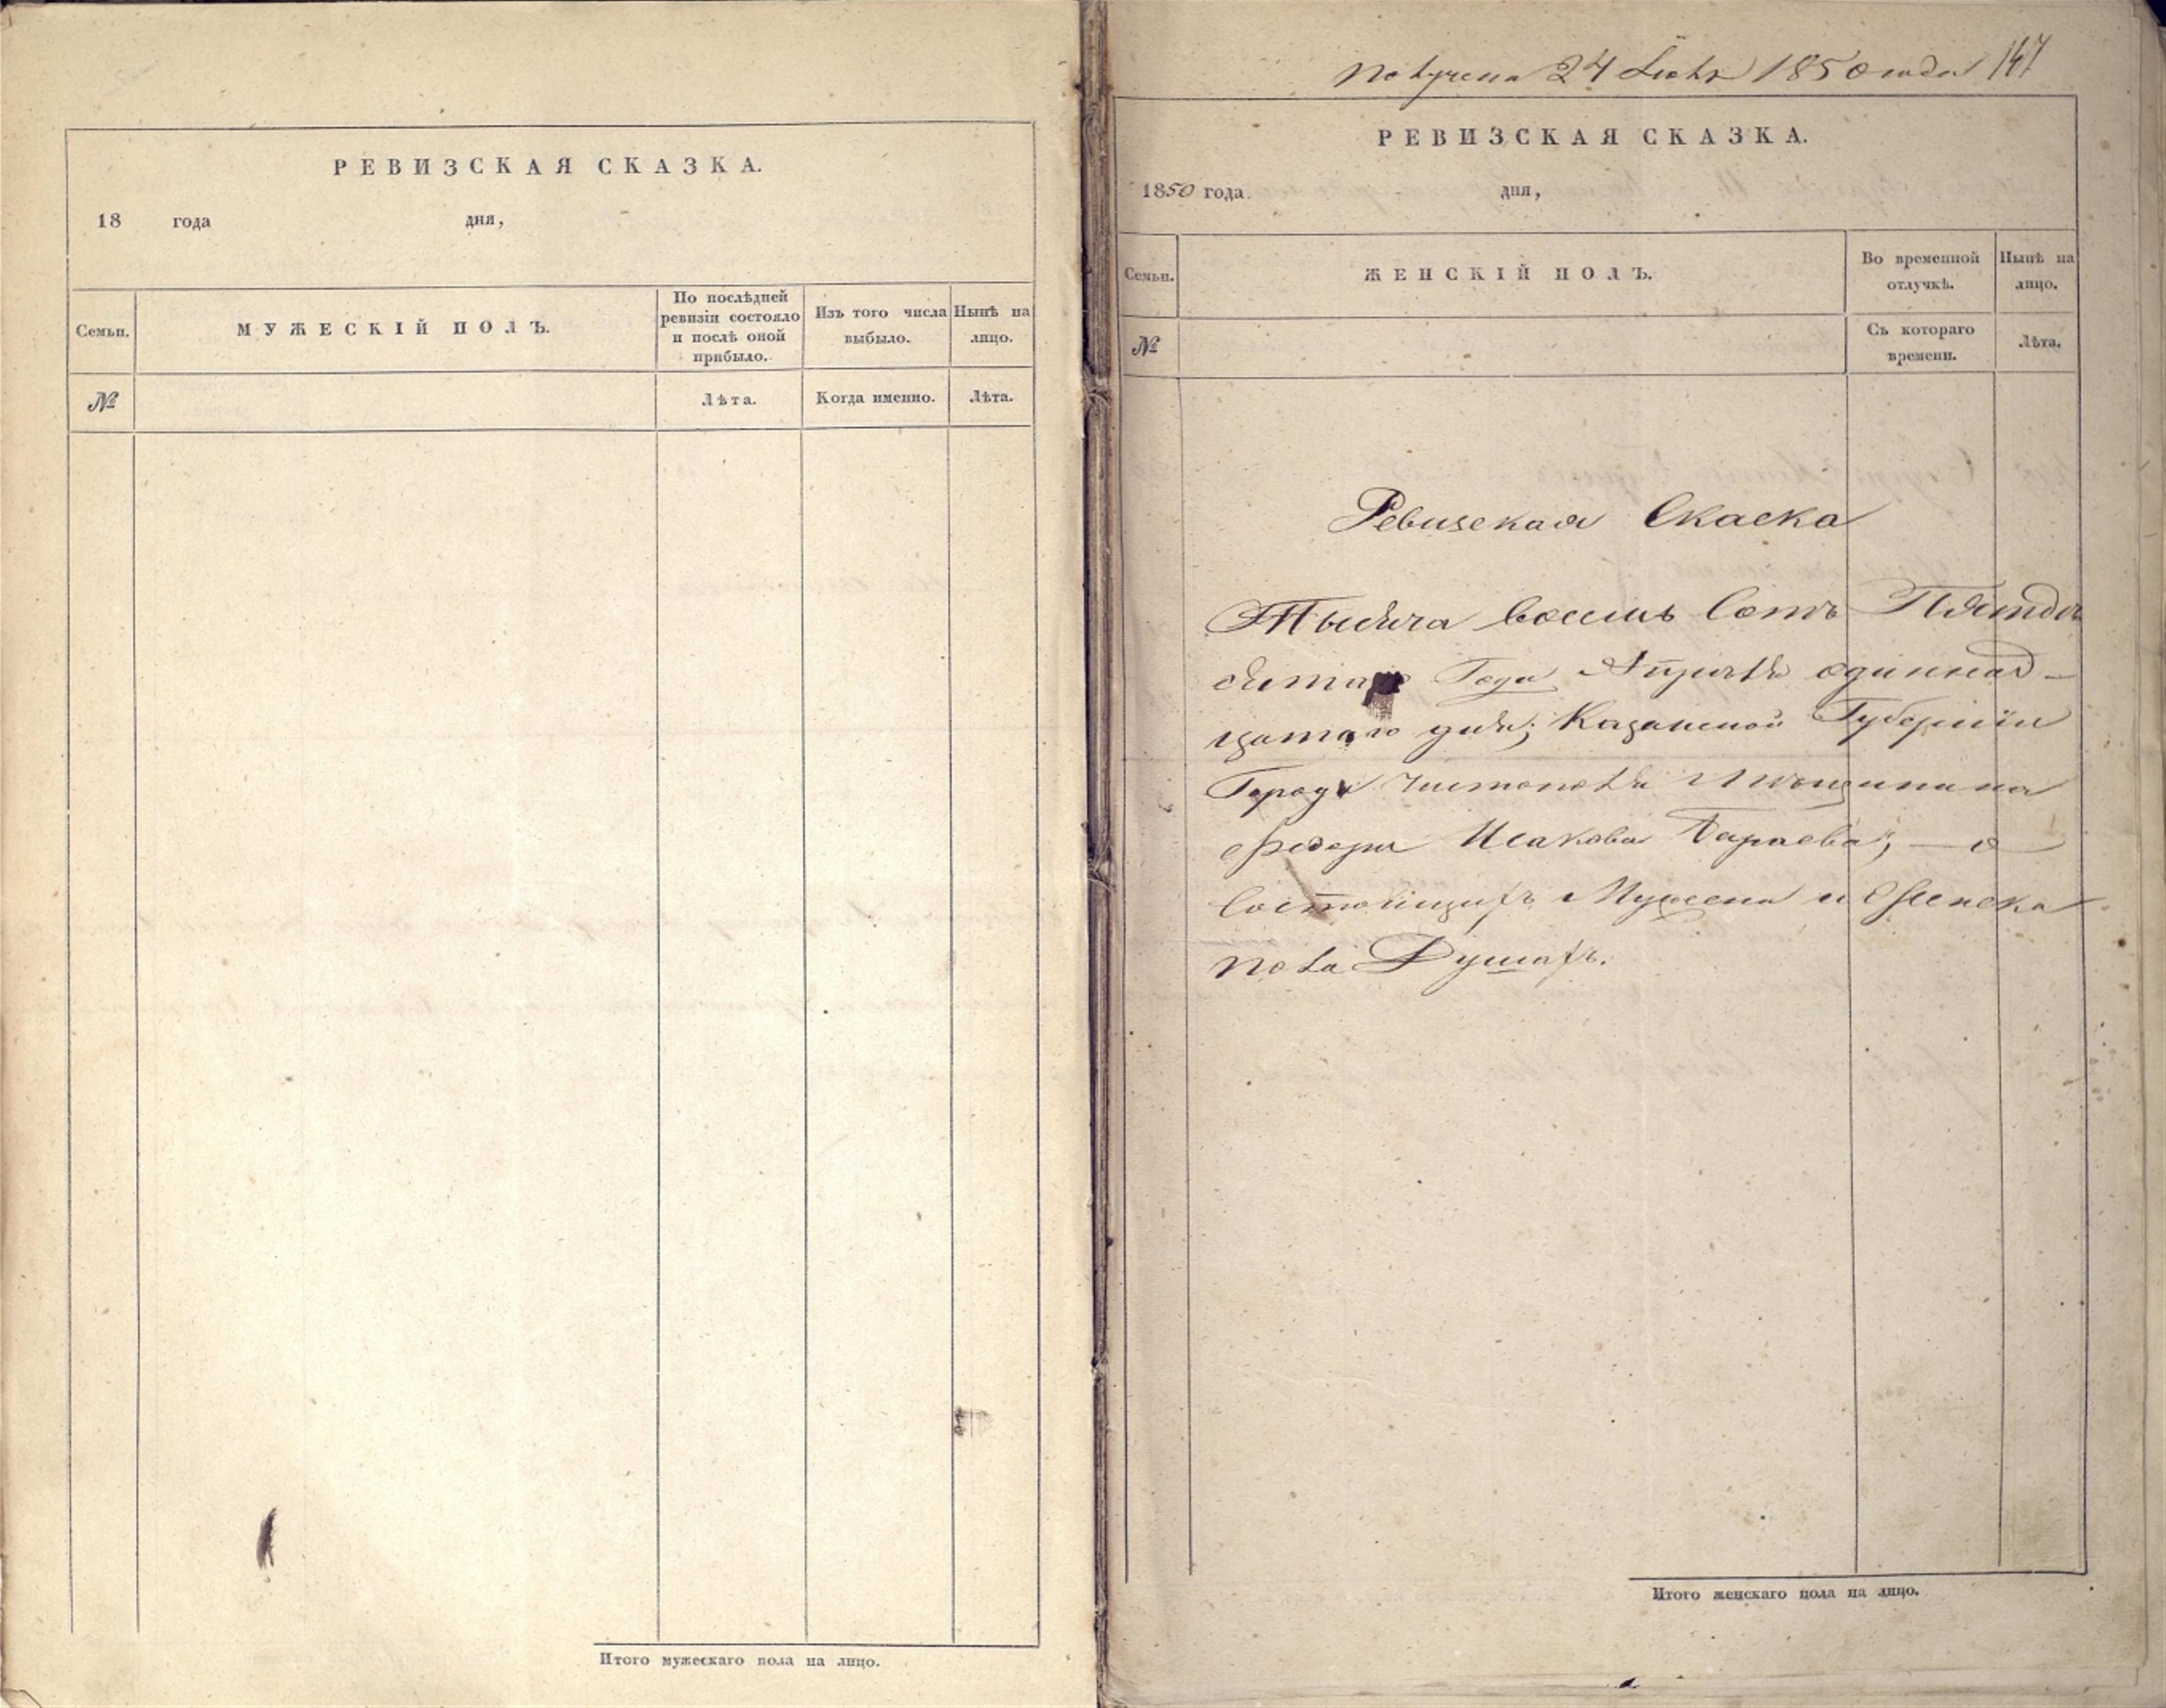 РЕВИЗСКАЯ СКАЗКА.
18 года дня,
Семьи.
МУЖЕСКІЙ ПОЛЪ.
По послѣдней
ревизіи состояло
и послѣ оной
прибыло.
Изъ того числа
выбыло.
Нынѣ на
лицо.
№
Лѣта.
Когда именно.
Лѣта.
Итого мужескаго пола на лицо.
Получена 24 1850 года 147
РЕВИЗСКАЯ СКАЗКА.
1850 года. дня,
Семьи.
ЖЕНСКІЙ ПОЛЪ.
Во временной
отлучкѣ.
Нынѣ на
лицо.
№
Съ котораго
времени.
Лѣта.
Ревизская Скаска
Тысяча восемь Сотъ Пятьде
сятаго Года Апрѣля одиннад-
цатаго дня; Казанской Губерніи
Города Чистополя Мѣщанина
Федора Исакова Бараева; — о
Состоящихъ Мужеска и Женска
пола Душахъ.
Итого женскаго пола на лицо.